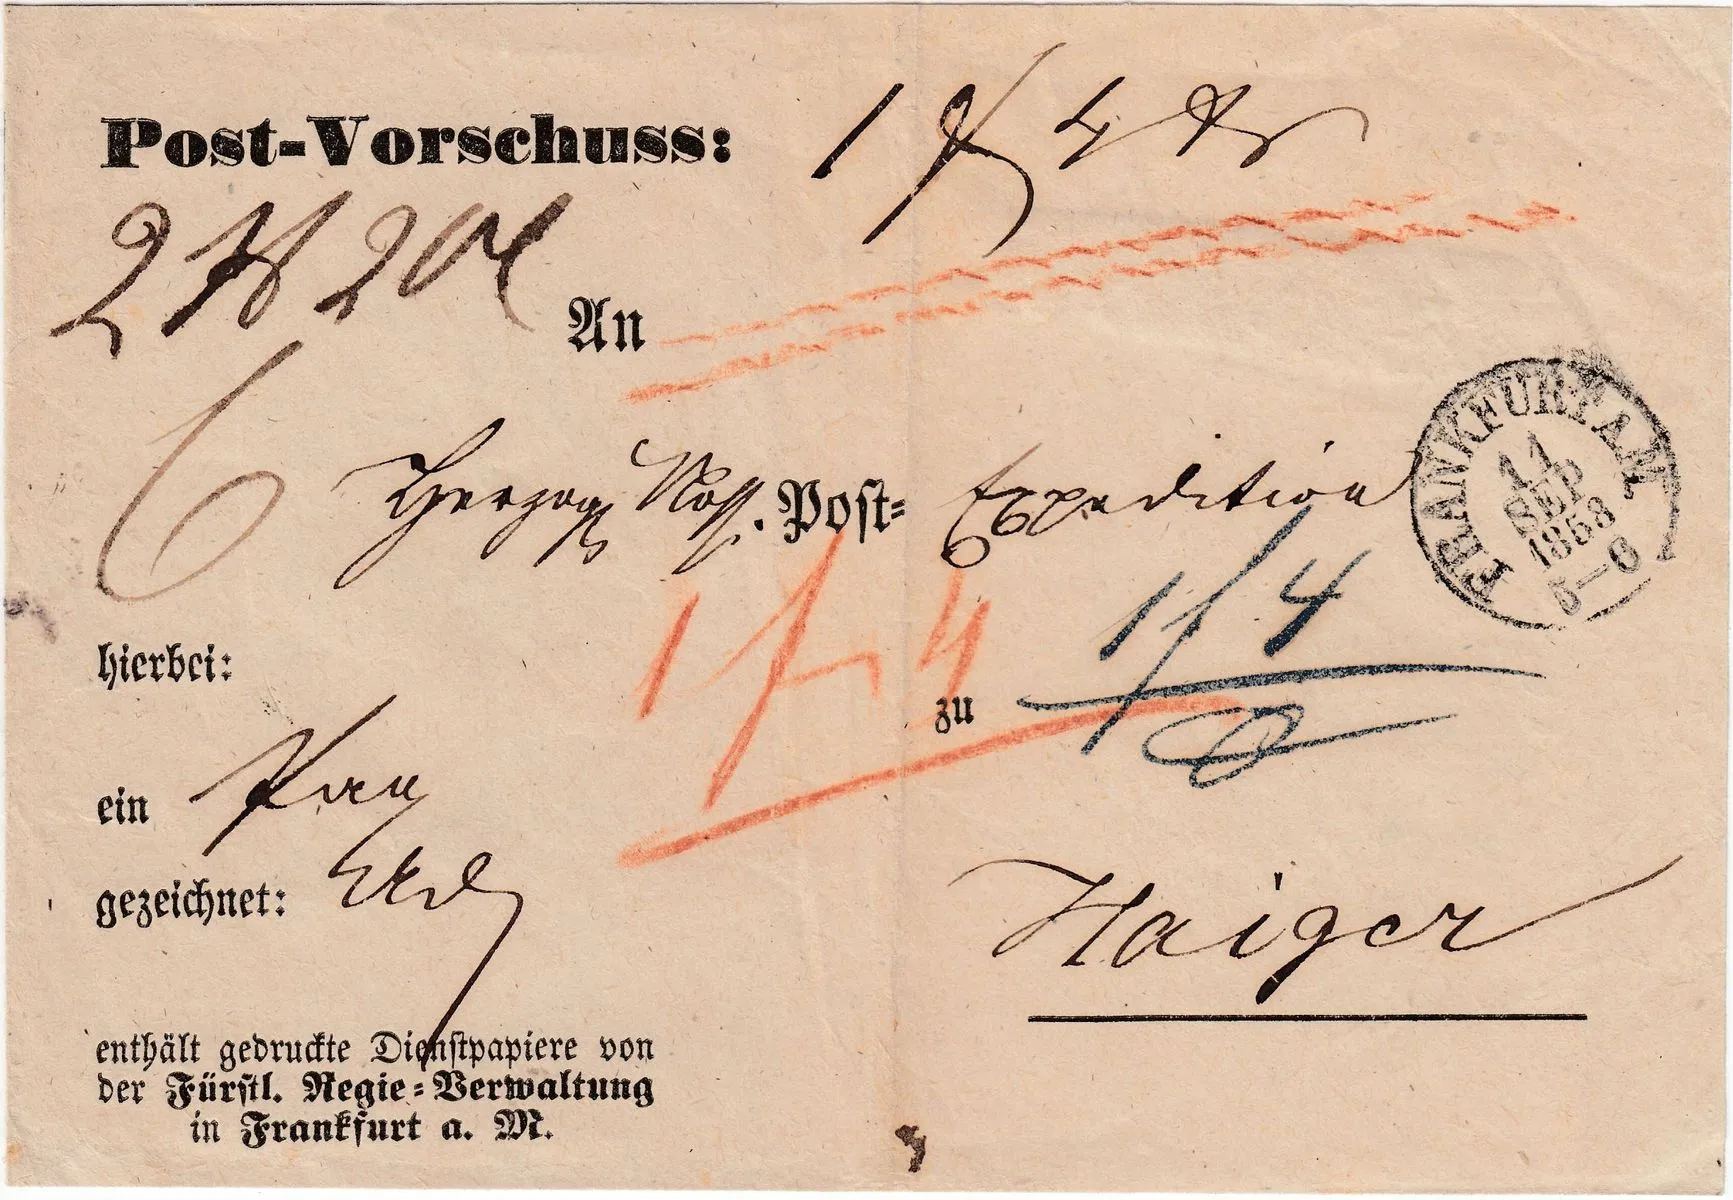 Post-Vorschuss:
1 f 4
2 20
An
6
Herzogl Nass. Post= Expedition
FRANKFURT A.M.
11
SEP
1858
5-6
hierbei:
1 f 4
1 f 4
zu
ein
gezeichnet:
Haiger
enthält gedruckte Dienstpapiere von
der Fürstl. Regie=Verwaltung
in Frankfurt a. M.